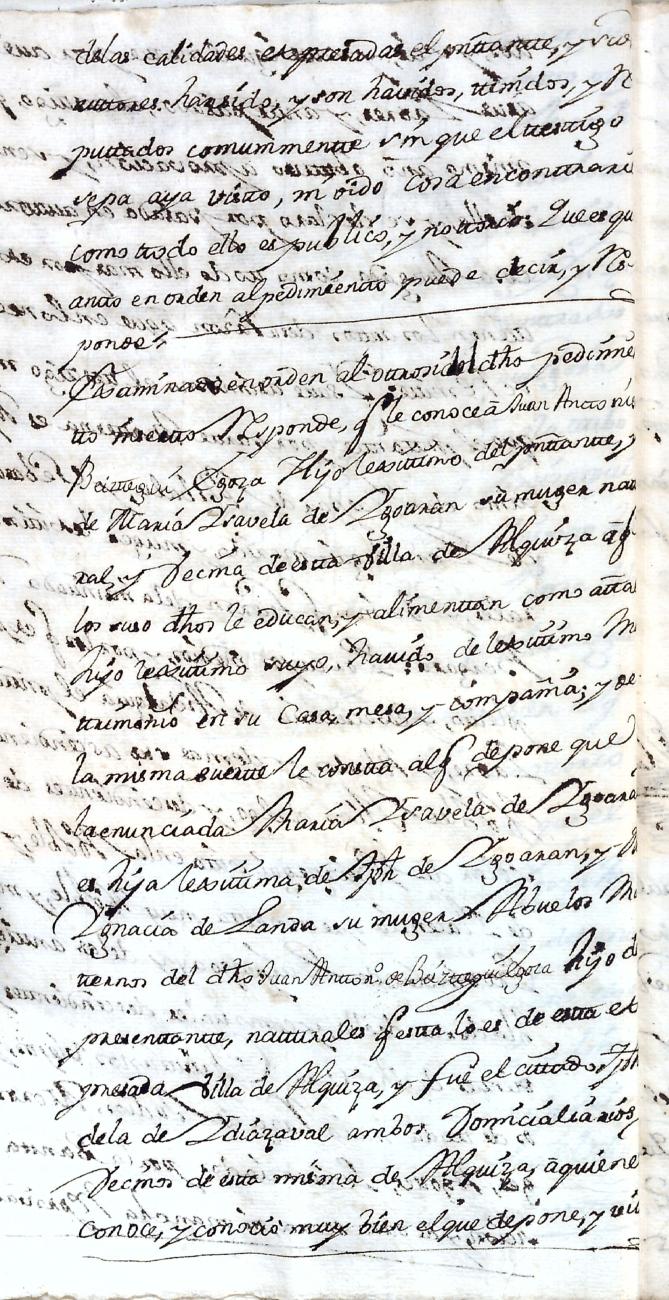 delas calidades expresadas el pntante, y sus
auttores han sido, y son havidos, ttenidos, y Re
puttados comunmentte sin que el testigo
sepa aya visto, ni oido cosa en conttrari
como ttodo ello es publico, y nottorio: Que es qu
antto en orden al pedimientto puede decir, y Res-
ponde;
Exsaminado en orden al ottrosi del dho pedimie
tto inserto Responde, q le conoce â Juan Antonio
Beizttegui Egoza Hijo lexitimo del pntante, y
de Maria Ysavela de Ygoaran su muger natu
ral, y Vecina de esta Villa de Alquiza aq
los suso dhos le educan, y alimenttan como atta
hijo lexittimo suyo, havido de lexittimo Ma
ttrimonio en su Casa, mesa, y compañia; y de
la misma suerte le constta al q depone que
la enunciada Maria Ysavela de Ygoara
es hija lexittima de Jph de Ygoaran, y
Ygnacia de Landa su muger Abuelos Ma
tternos del dho Juan Antto.º de Beizttegui Egoza hijo d
presenttante, natturales q esta lo es de esta ex
presada Villa de Alquiza, y fue el cittado Jph
dela de Ydiazaval ambos Domiciliarios,
Vecinos de esta misma de Alquiza, aquiene
conoce, y conocio muy bien el que depone, y